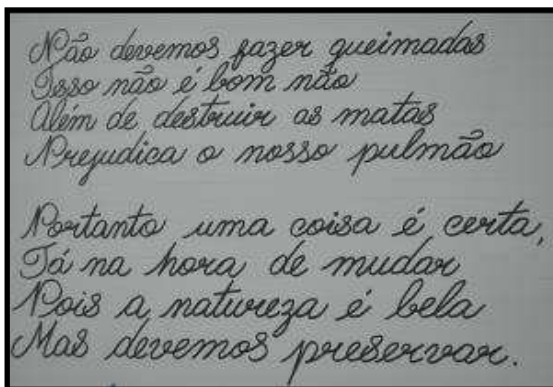 Não devemos fazer queimadas
Isso não é bom não
Além de destruir as matas
Prejudica o nosso pulmão

Portanto uma coisa é certa,
Tá na hora de mudar
Pois a natureza é bela
Mas devemos preservar.